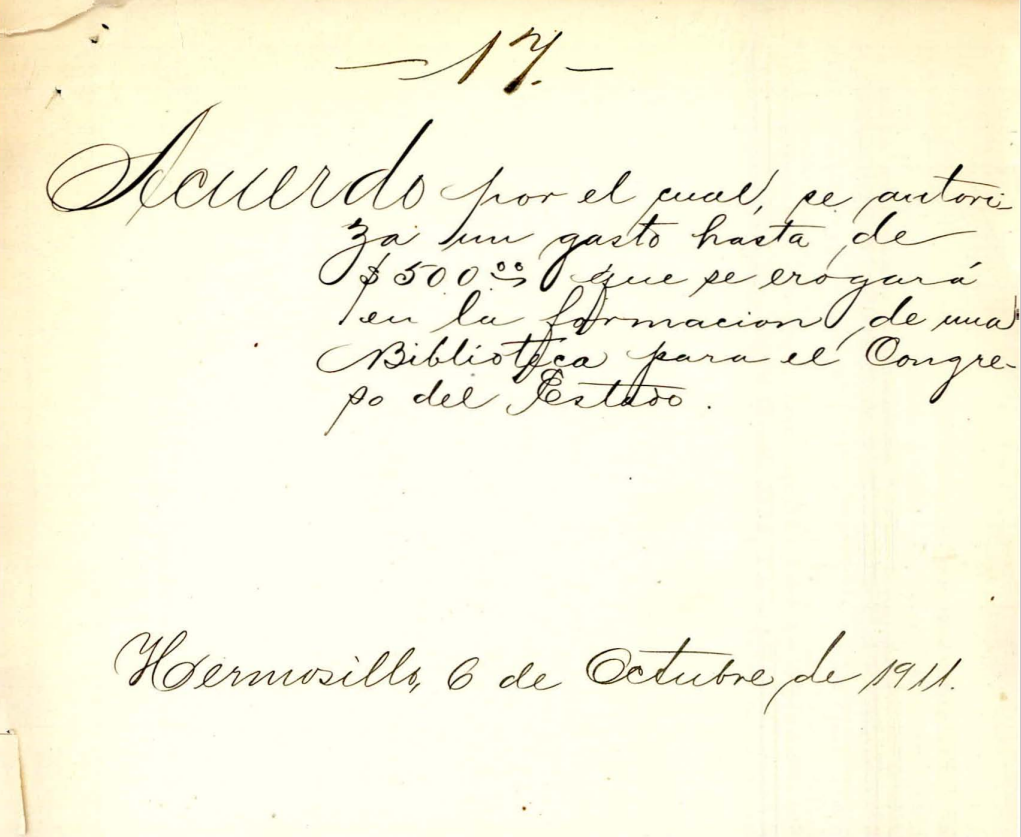 —17.—
Acuerdo por el cual, se autori-
za un gasto hasta de
$500.00 que se erogará
en la formacion de una
Biblioteca para el Congre-
so del Estado.
Hermosillo, 6 de Octubre de 1911.